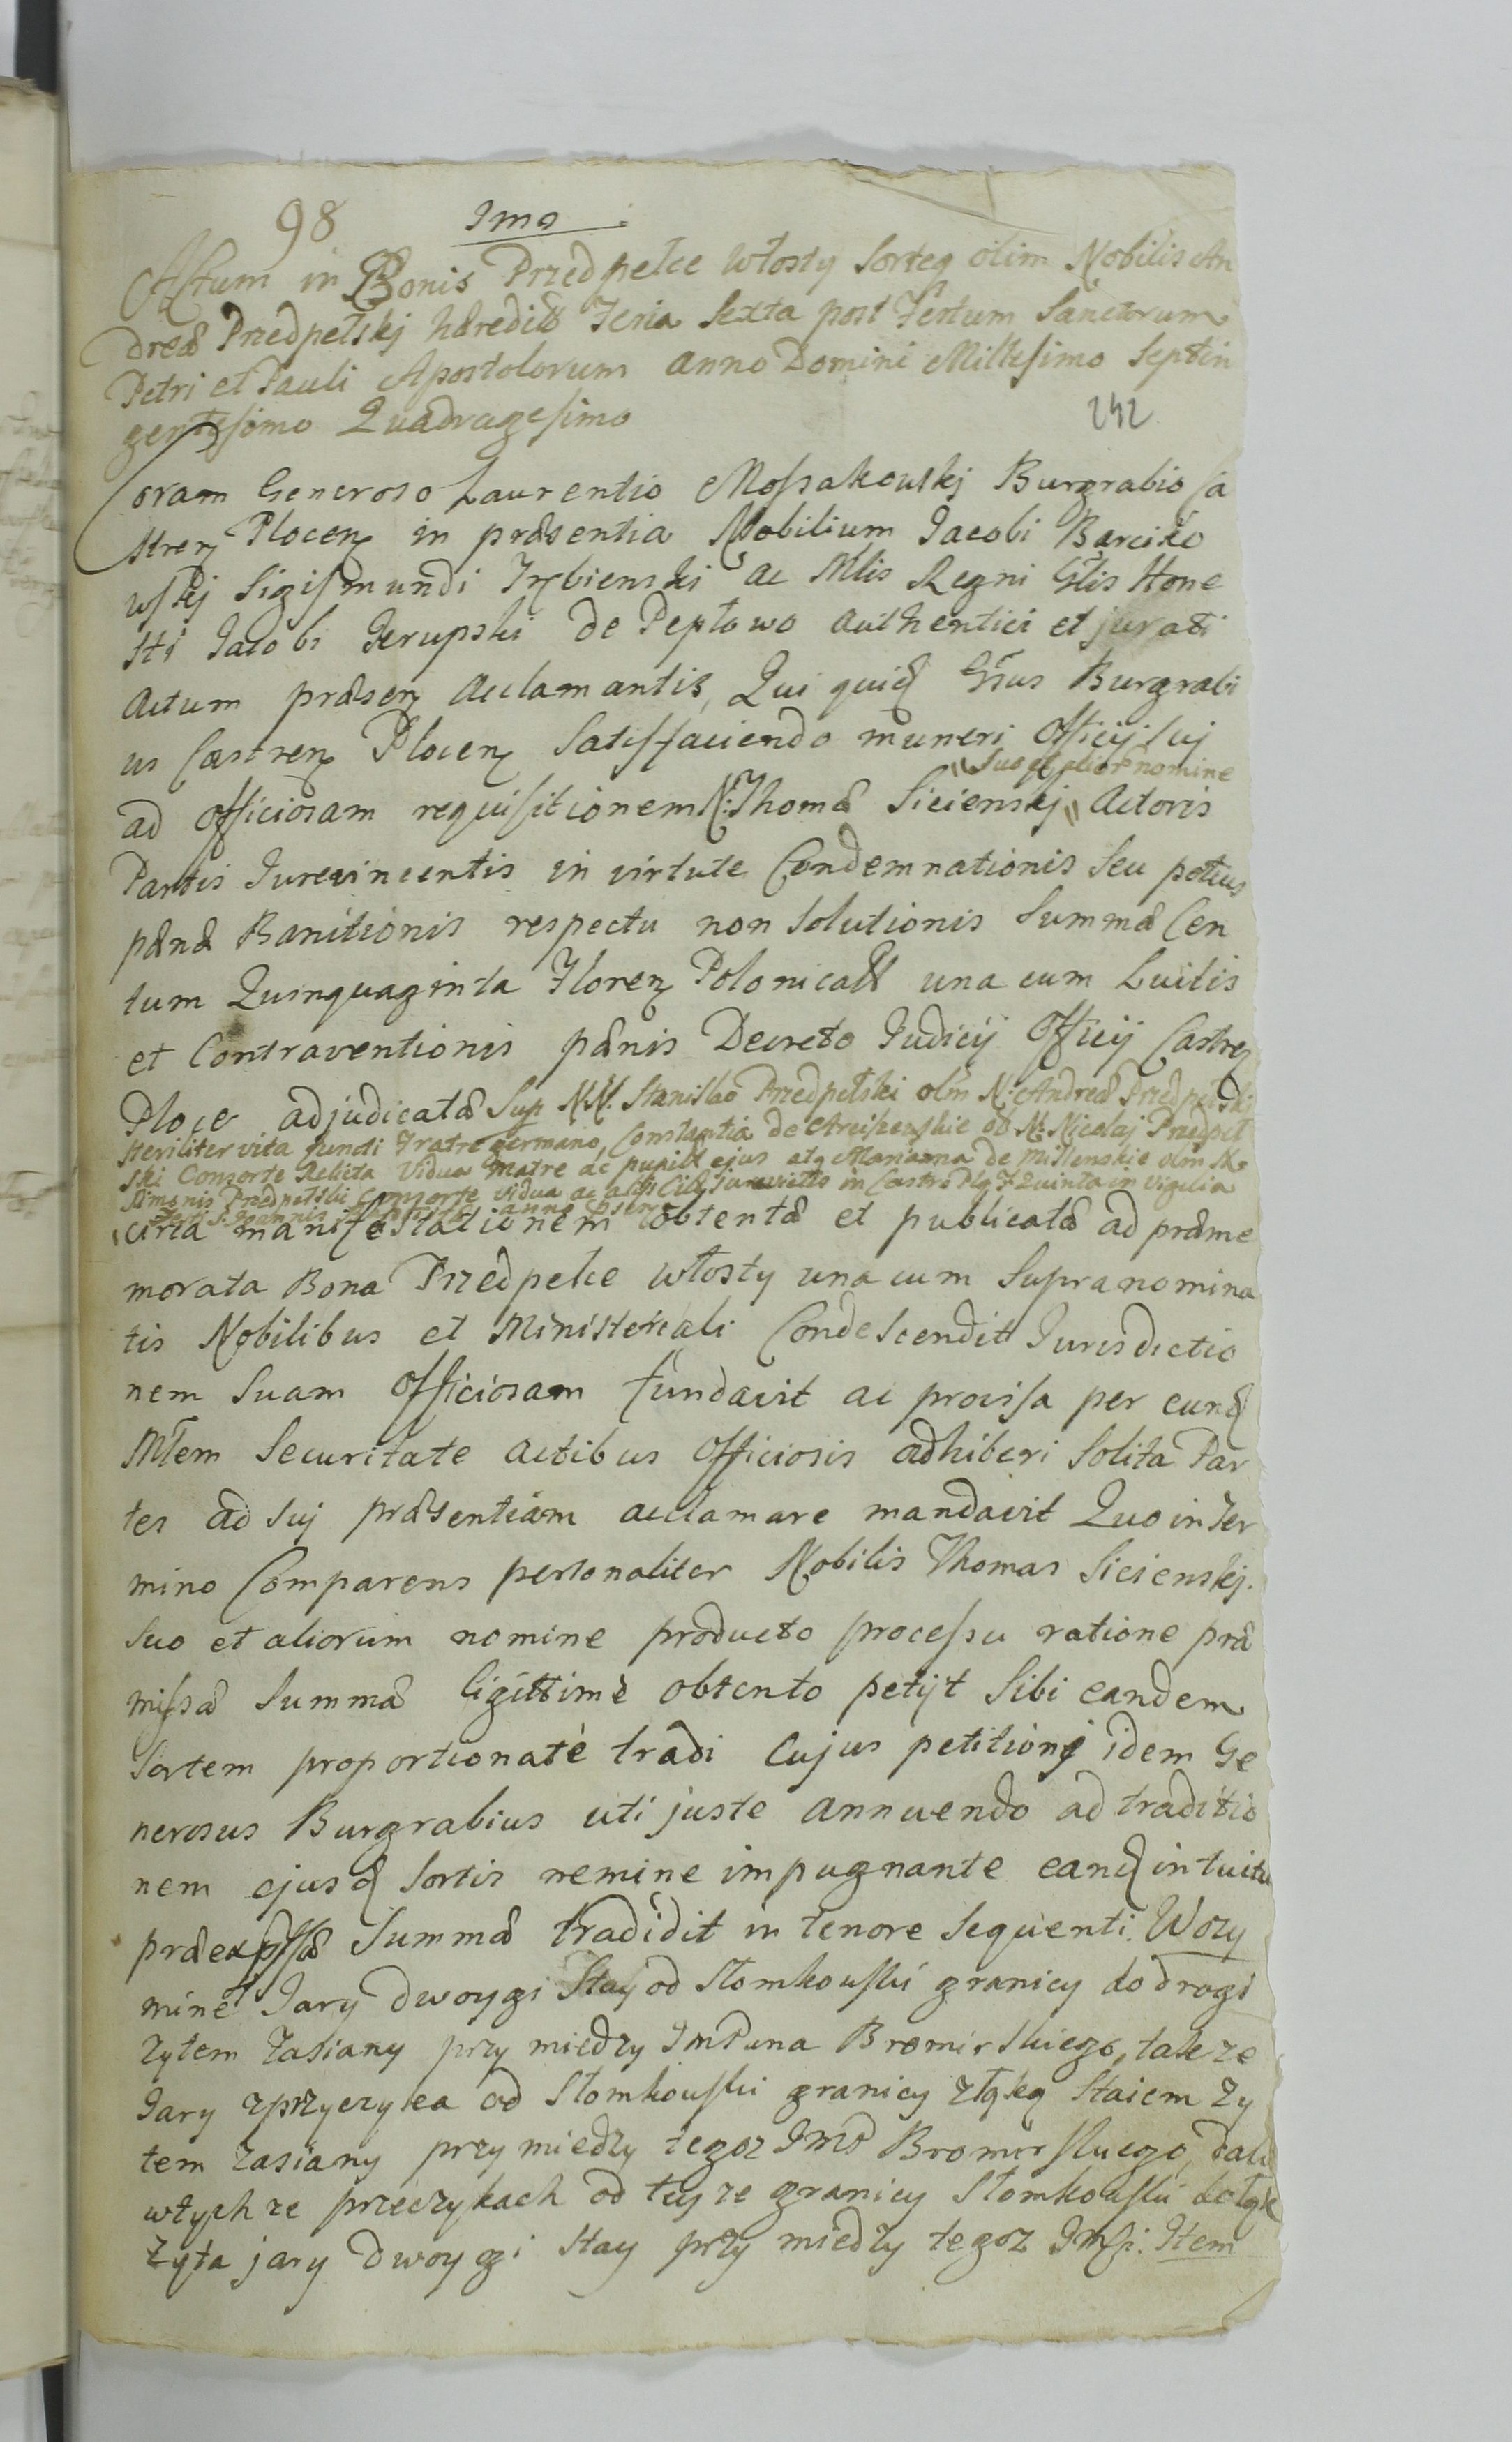 98 Imo
Actum in Bonis Przedpełce Włosty Sorteq olim Nobilis An
dreæ Przedpełskj hæredit Feria Sexta post Festum Sanctorum
Petri et Pauli Apostolorum Anno Domini Millesimo Septin
gentesimo Quadragesimo
242
Coram Generoso Laurentio Mossakowskj Burgrabio Ca
stren Plocen in præsentia Nobilium Jacobi Barciko
wskj Sigismundi Trzbienski ac Mlis Regni Glis Hone
sti Jacobi Kerupski de Pepłowo authentici et jurati
actum præsen acclamantis, Qui quid Gsus Burgrabi
us Castren Plocen Satisfaciendo muneri Officij suj
suo et alior nomine
ad officiosam requisitionem N: Thomæ Sicienskj Actoris
Partis Jurevincentis in virtute Condemnationis seu potius
pænæ Banitionis respectu non Solutionis Summæ Cen
tum Quinquaginta Floren Polonicall una cum Luitis
et Contraventionis pænis Decreto Judicij Officij Castren
Ploce adjudicatæ Sup N.N. Stanislao Przedpełski olim N: Andreæ Przedpełski
steriliter vita functi Fratre germano, Constantia de Arciszewskie ol N: Nicolaj Przedpeł
ski Consorte relicta Vidua matre ac pupill ejus atq Marianna de Millenskie olm N.
Simonis Przedpełski Consorte vidua ac aliis Cill jurevictis in Castro Plo F Quinta in vigilia
Festi S. Joannis anno psen
circa manifestationem obtentæ et publicatæ ad præme
morata Bona Przedpełce Włosty una cum Supranomina
tis Nobilibus et Ministeriali Condescendit Jurisdictio
nem Suam Officiosam fundavit ac provisa per eund
Mlem Securitate actibus Officiosis adhiberi Solita Par
tes ad Suj præsentiam acclamare mandavit Quo in Ter
mino Comparens personaliter Nobilis Thomas Sicienskj.
Suo et aliorum nomine producto processu ratione præ
missæ Summæ ligittimè obtento petijt Sibi eandem
Sortem proportionatè tradi Cujus petitionj idem Ge
nerosus Burgrabius uti juste annuendo ad traditio
nem ejusd Sortis nemine impugnante eand intuitu
præexpssæ Summæ tradidit in tenore sequenti. Wozy
minet Jary dwoygi Stay od Słomkowski granicy do drogi
Zytem Zasiany przy miedzy JmPana Bromirskiego, takze
Jary zprzyczyka od Słomkowski granicy złąką Staiem Zy
tem Zasiany przy miedzy tegoz JmP Bromirskiego, dali
wtych ze przeczykach od teyze granicy Słomkowski do łąk
Zyta jary dwoygi Stay przy miedzy tegoz Jmsp: Item